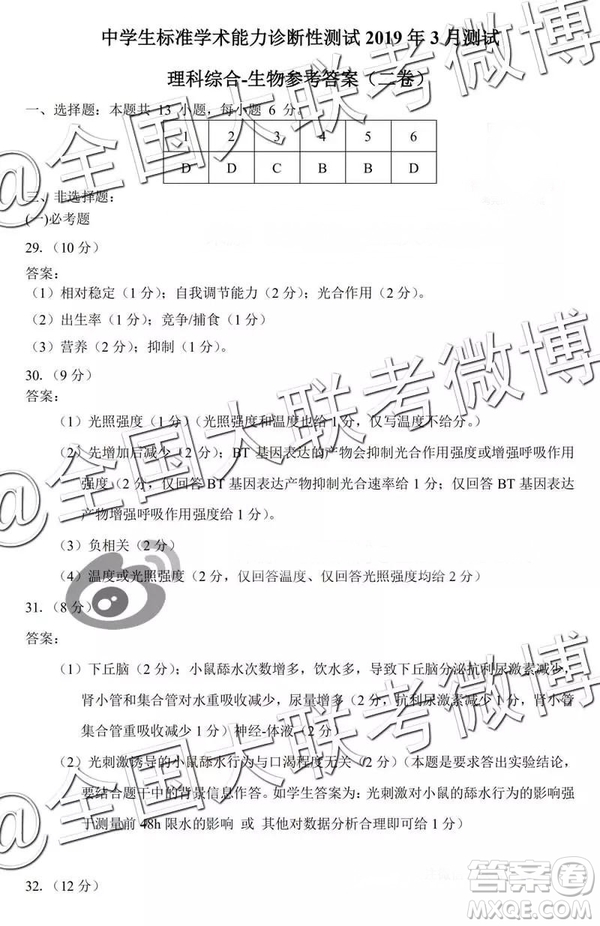 中学生标准学术能力诊断性测试2019年3月测试
理科综合-生物参考答案（二卷）
一、选择题：本题共 13 小题，每小题 6 分。
1 2 3 4 5 6
D D C B B D
二、非选择题：
(一)必考题
29.（10分）
答案：
（1）相对稳定（1分）；自我调节能力（2分）；光合作用（2分）。
（2）出生率（1分）；竞争/捕食（1分）
（3）营养（2分）；抑制（1分）。
30.（9分）
答案：
（1）光照强度（1分）（光照强度和温度也给1分，仅写温度不给分）。
（2）先增加后减少（2分）；BT基因表达的产物会抑制光合作用强度或增强呼吸作用
强度（2分，仅回答BT基因表达产物抑制光合速率给1分；仅回答BT基因表达
产物增强呼吸作用强度给1分）。
（3）负相关（2分）
（4）温度或光照强度（2分，仅回答温度、仅回答光照强度均给2分）
31.（8分）
答案：
（1）下丘脑（2分）；小鼠舔水次数增多，饮水多，导致下丘脑分泌抗利尿激素减少，
肾小管和集合管对水重吸收减少，尿量增多（3分，抗利尿激素减少1分，肾小管
集合管重吸收减少1分）神经-体液（1分）
（2）光刺激诱导的小鼠舔水行为与口渴程度无关（2分）（本题是要求答出实验结论，
要结合题干中的背景信息作答。如学生答案为：光刺激对小鼠的舔水行为影响强
于测量前48h限水的影响 或 其他对数据分析合理即可给1分）
32.（12分）
@全国大联考微博
@全国大联考微博
@全国大联考微博
答案圈
MXQE.COM